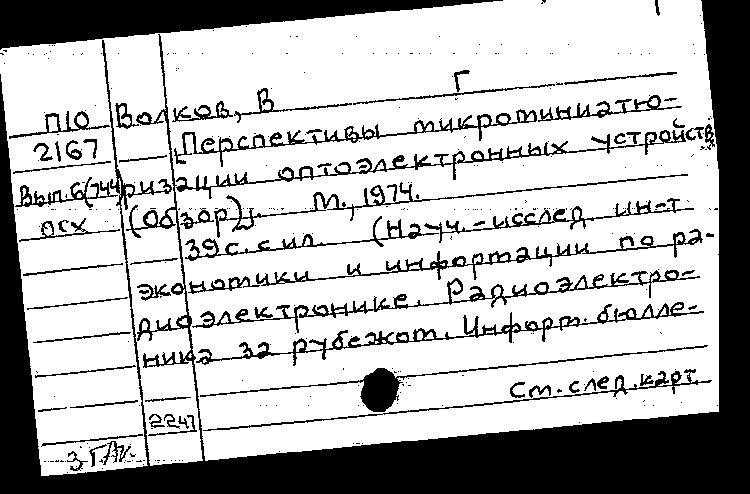 П10 Волков, В Г
2167 [Перспективы микроминиатю-
Вып. 6(744) ризации оптоэлектронных устройств
осх (Обзор)]. М., 1974.
39с. с ил. (Науч.-исслед. ин-т
экономики и информации по ра-
диоэлектронике. Радиоэлектро-
ника за рубежом. Информ. бюлле-
См. след. карт.
2247